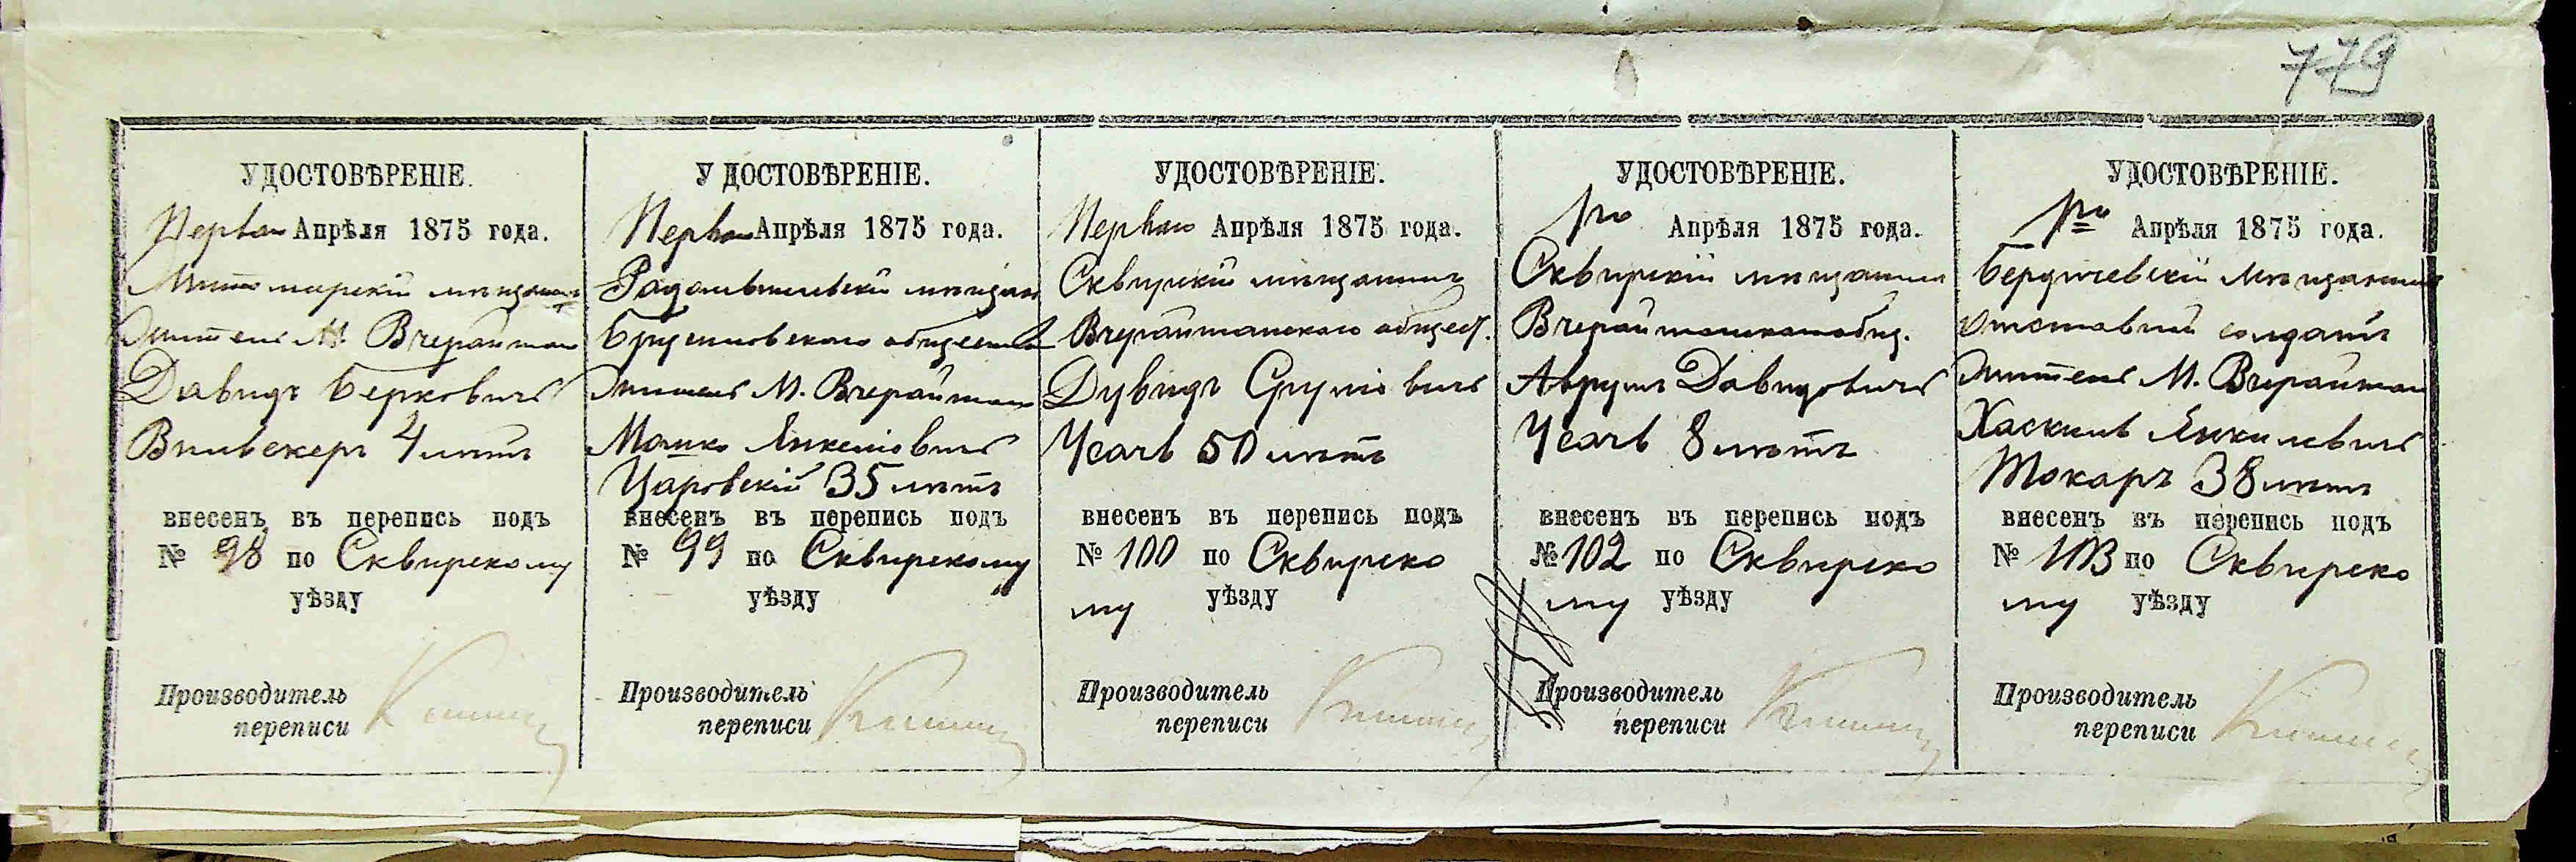 779
УДОСТОВѢРЕНІЕ.
Перваго Апрѣля 1875 года.
Житомирскій мѣщанинъ
житель М. Вчерайшаго
Давидъ Берковичъ
4 лѣтъ
внесенъ въ перепись подъ
№ 98 по Сквирскому
уѣзду
Производитель
переписи
У ДОСТОВѢРЕНІЕ.
Перваго Апрѣля 1875 года.
Радомысльскій мѣщан
Брусиловскаго общества
житель М. Вчерайшаго
Мошко Янкелiовичъ
35 лѣтъ
внесенъ въ перепись подъ
№ 99 по Сквирскому
уѣзду
Производитель
переписи
УДОСТОВѢРЕНІЕ.
Перваго Апрѣля 1875 года.
Сквирскій мѣщанинъ
Вчерайшанскаго общест.
Дувидъ Сруліовичъ
Усачъ 50 лѣтъ
внесенъ въ перепись подъ
№ 100 по Сквирско
му уѣзду
Производитель
переписи
УДОСТОВѢРЕНІЕ.
1го Апрѣля 1875 года.
Сквирскій мѣщанин
Вчерайшанскаго общ.
Аврумъ Давидовичъ
Усачъ 8 лѣтъ
внесенъ въ перепись подъ
№ 102 по Сквирско
му уѣзду
Производитель
переписи
УДОСТОВѢРЕНІЕ.
1го Апрѣля 1875 года.
Бердичевскій мѣщанинъ
отставной солдатъ
житель М. Вчерайшаго
Хаскель Янкилевичъ
Токаръ 38 лѣтъ
внесенъ въ перепись подъ
№ 103 по Сквирско
му уѣзду
Производитель
переписи